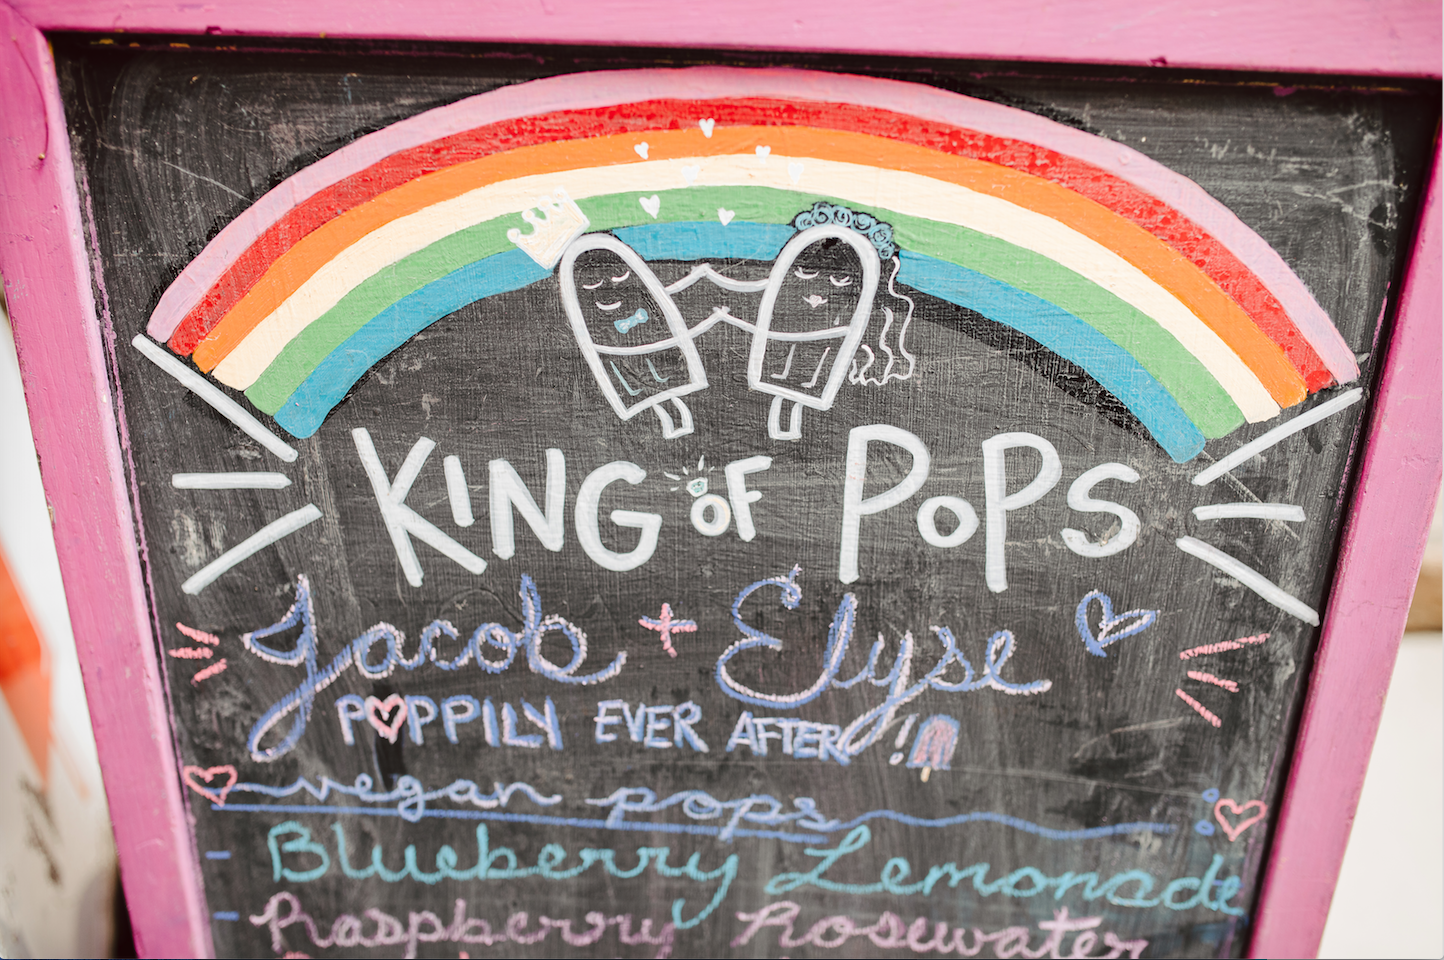 KING OF POPS
Jacob + Elyse
POPPILY EVER AFTER!
vegan pops
- Blueberry Lemonade
- Raspberry Rosewater